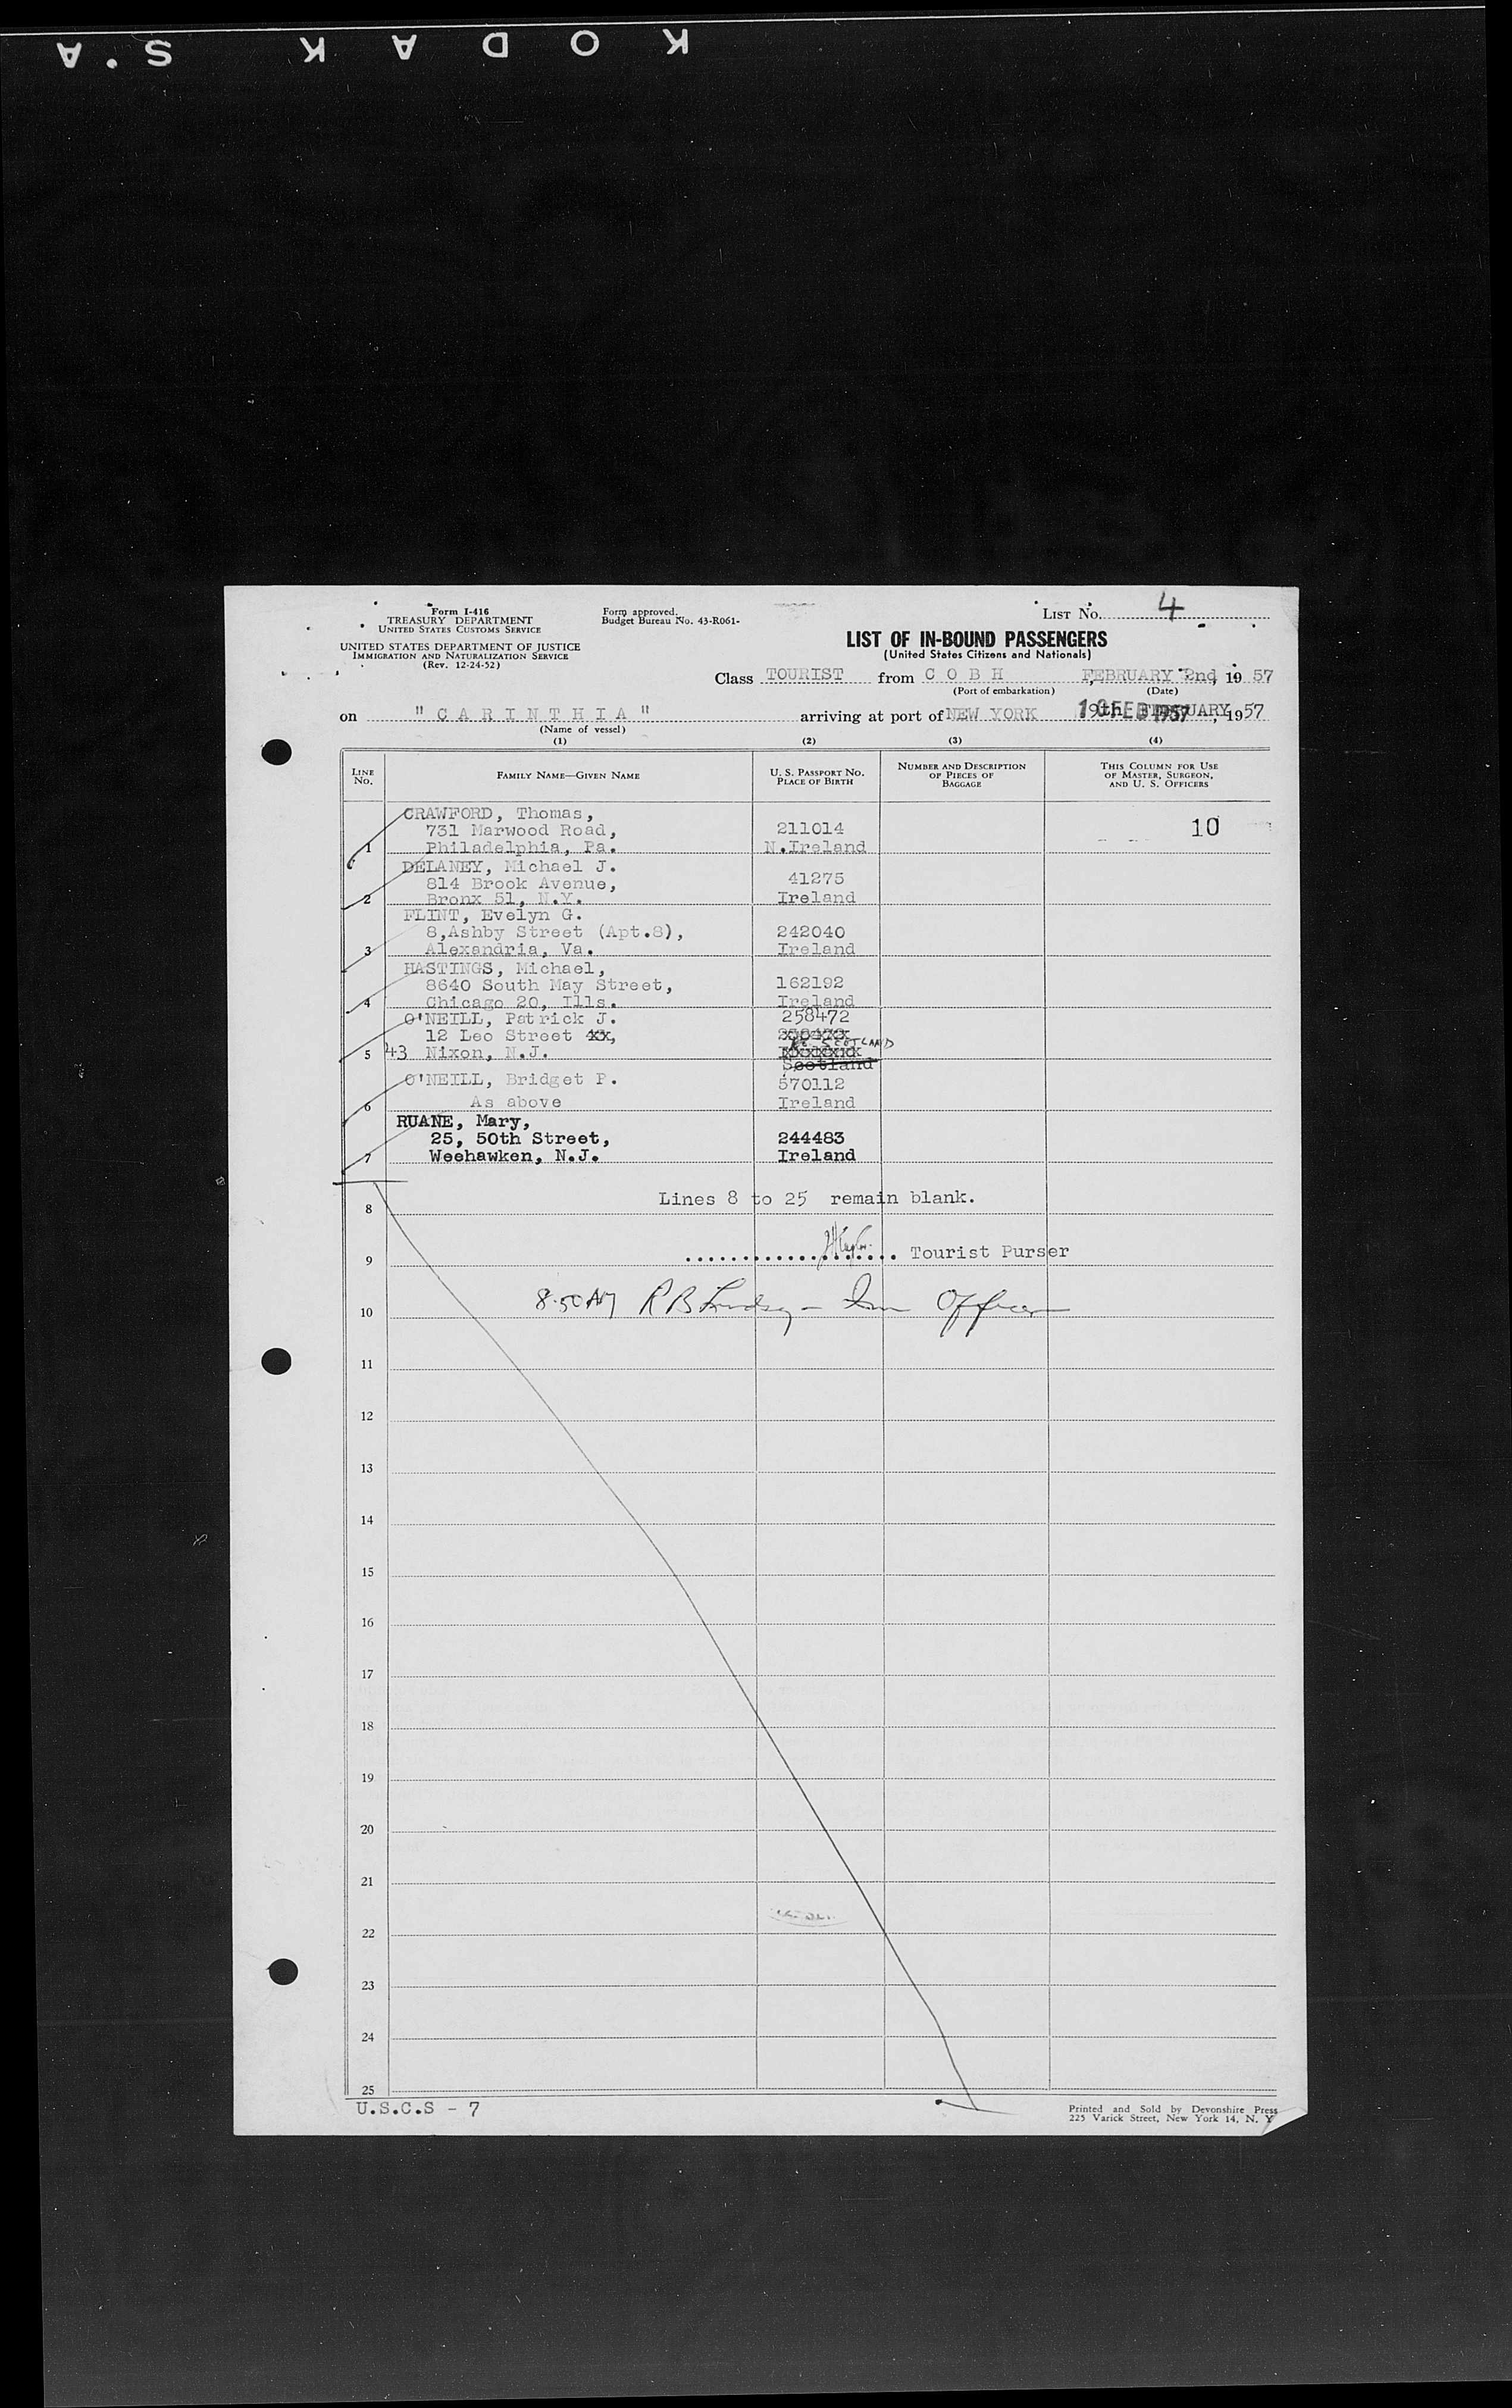 KODAK S.A
Form I-416
TREASURY DEPARTMENT
UNITED STATES CUSTOMS SERVICE
UNITED STATES DEPARTMENT OF JUSTICE
IMMIGRATION AND NATURALIZATION SERVICE
(Rev. 12-24-52)
Form approved.
Budget Bureau No. 43-R061-
LIST NO. 4
LIST OF IN-BOUND PASSENGERS
(United States Citizens and Nationals)
Class TOURIST from C O B H FEBRUARY 2nd, 19 57
(Port of embarkation) (Date)
on " C A R I N T H I A " arriving at port of NEW YORK FEBRUARY, 1957
(Name of vessel)
(1) (2) (3) (4)
LINE NO.
FAMILY NAME—GIVEN NAME
U. S. PASSPORT NO.
PLACE OF BIRTH
NUMBER AND DESCRIPTION
OF PIECES OF
BAGGAGE
THIS COLUMN FOR USE
OF MASTER, SURGEON,
AND U. S. OFFICERS
CRAWFORD, Thomas,
731 Marwood Road, 211014 10
1 Philadelphia, Pa. N.Ireland
DELANEY, Michael J.
814 Brook Avenue, 41275
2 Bronx 51, N.Y. Ireland
FLINT, Evelyn G.
8,Ashby Street (Apt.8), 242040
3 Alexandria, Va. Ireland
HASTINGS, Michael,
8640 South May Street, 162192
4 Chicago 20, Ills. Ireland
O'NEILL, Patrick J. 258472
12 Leo Street xx,
SCOTLAND
5 43 Nixon, N.J. xxxxxxx
Scotland
O'NEILL, Bridget P. 570112
6 As above Ireland
RUANE, Mary,
25, 50th Street, 244483
7 Weehawken, N.J. Ireland
8 Lines 8 to 25 remain blank.
9 Tourist Purser
10 8.50 AM R B Lindsay - Imm Officer
11
12
13
14
15
16
17
18
19
20
21
22
23
24
25
U.S.C.S - 7
Printed and Sold by Devonshire Press
225 Varick Street, New York 14, N. Y